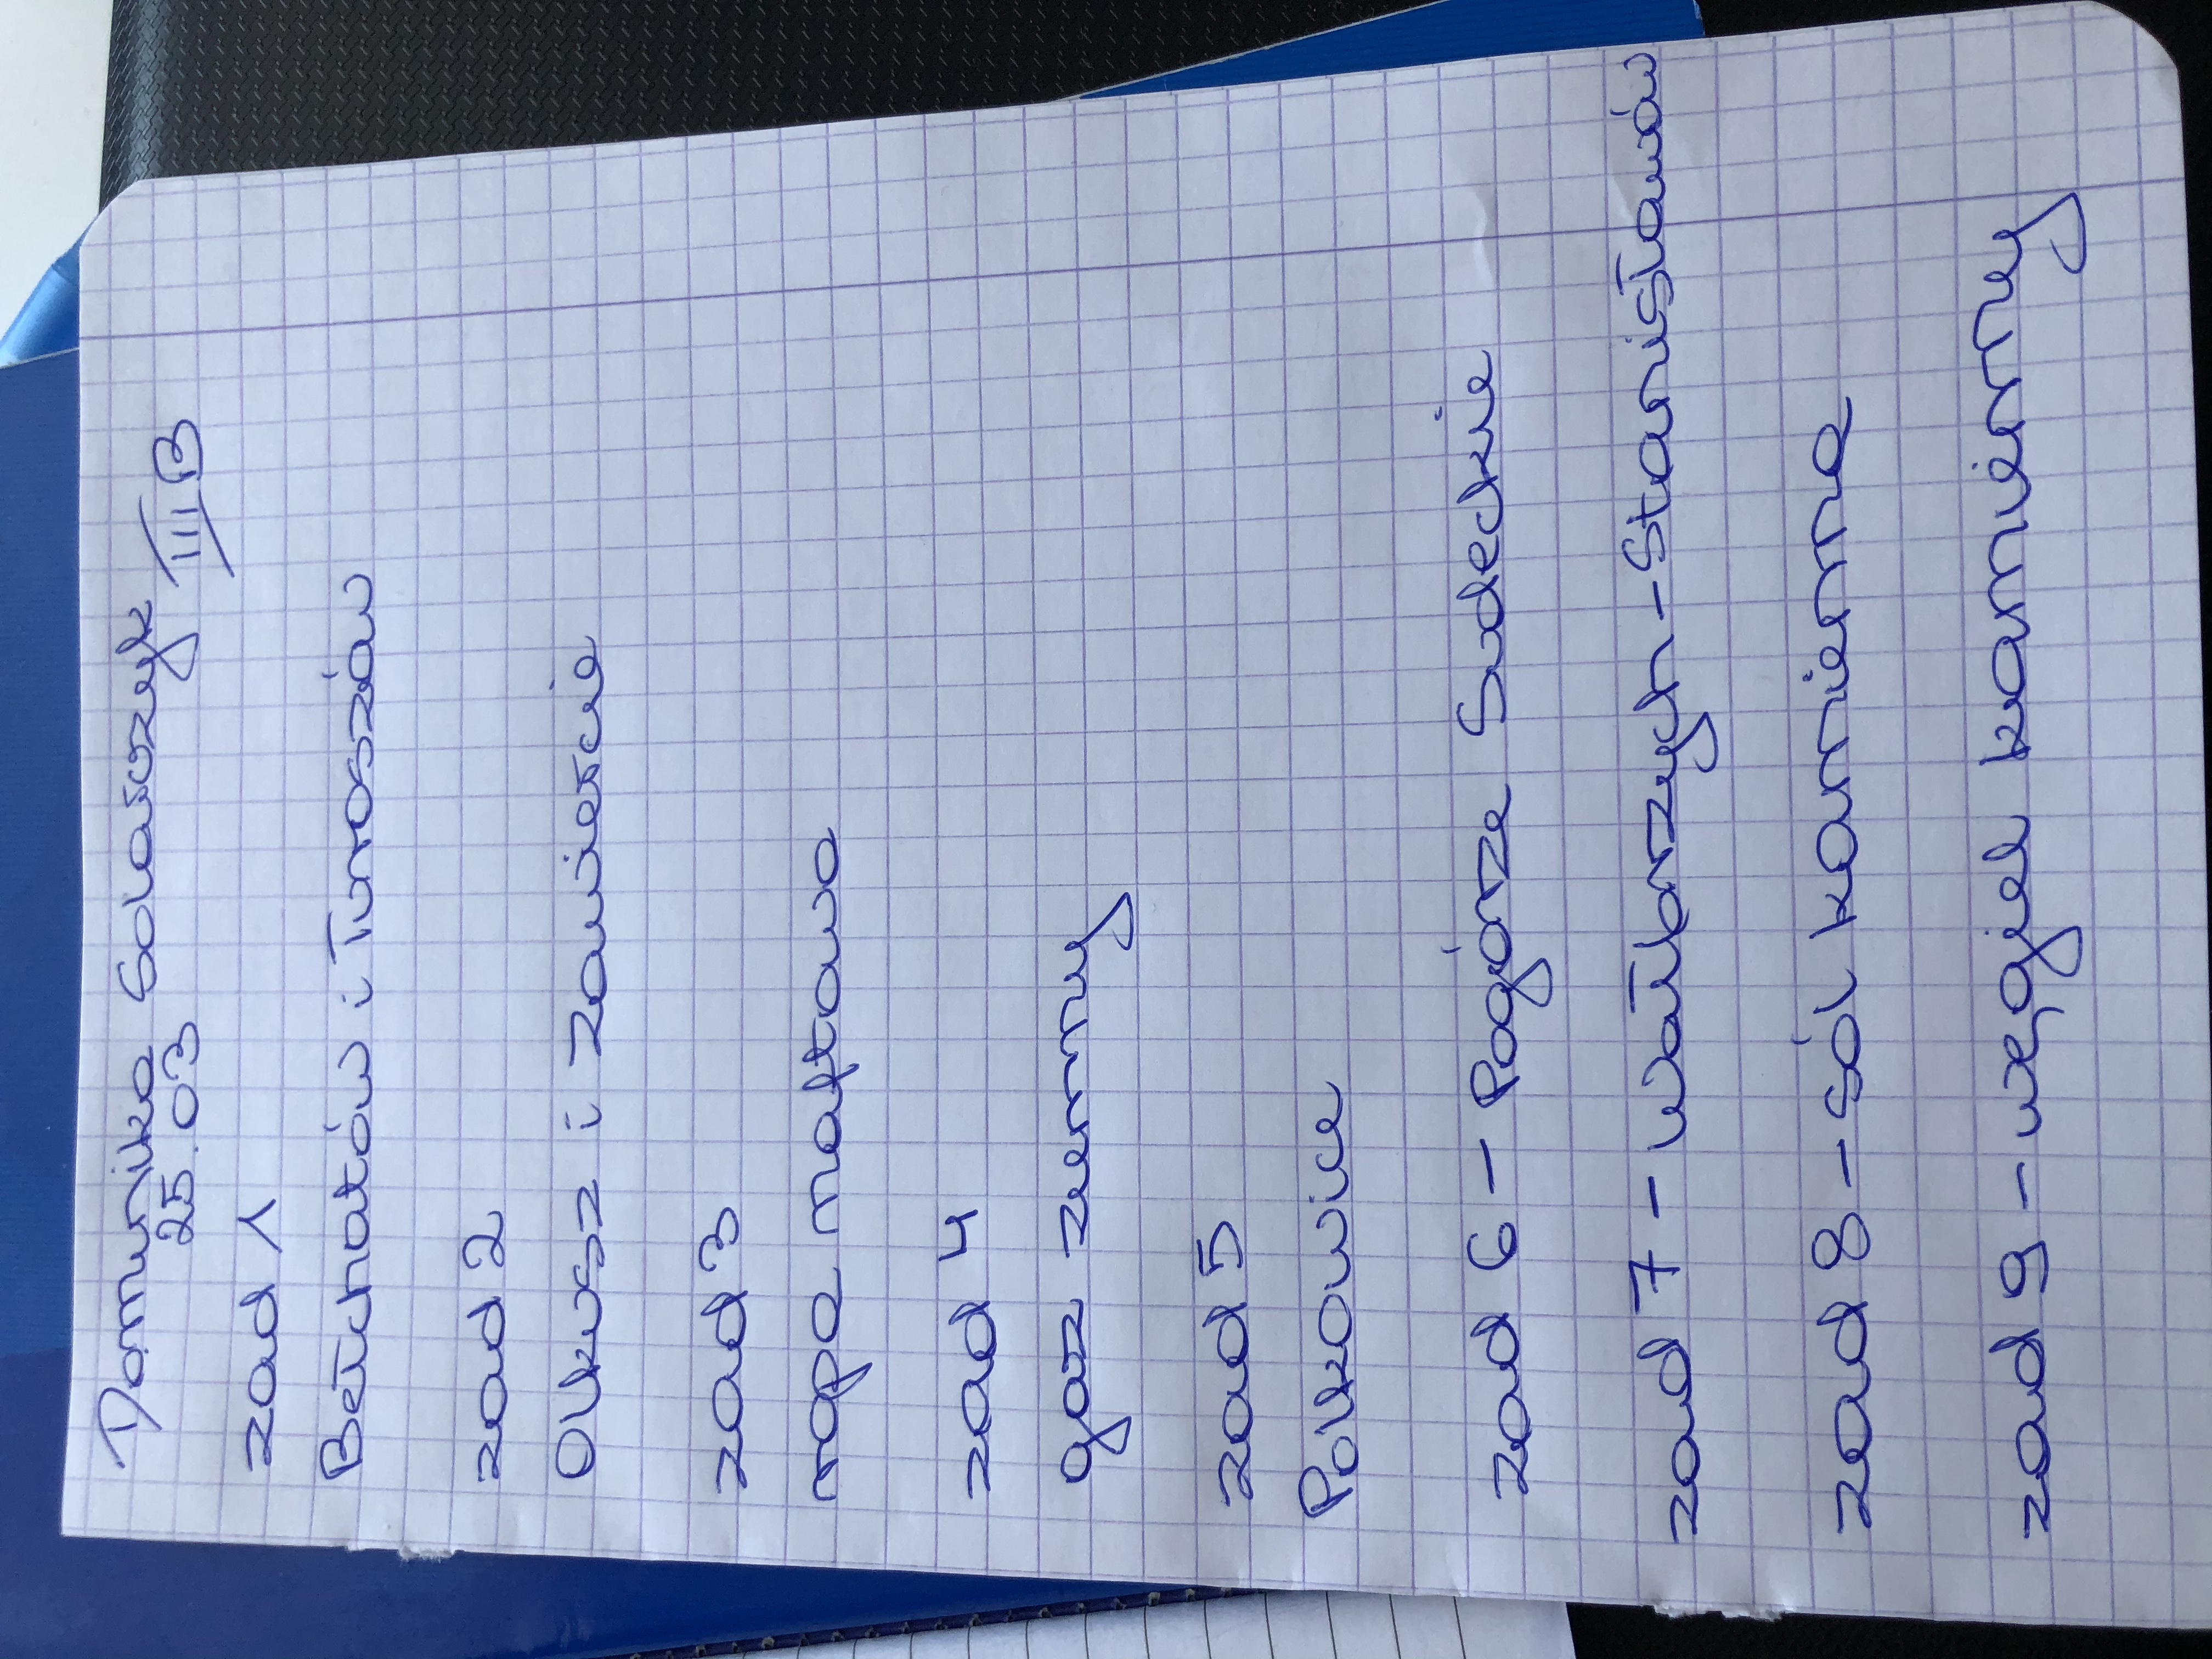 Dominika Solarczyk
25.03 III B
zad 1
Bełchatów i Turoszów
zad 2
Olkusz i Zawiercie
zad 3
ropa naftowa
zad 4
gaz ziemny
zad 5
Polkowice
zad 6 - Pogórze Sudeckie
zad 7 - Wałbrzych - Stanisławów
zad 8 - sól kamienna
zad 9 - węgiel kamienny